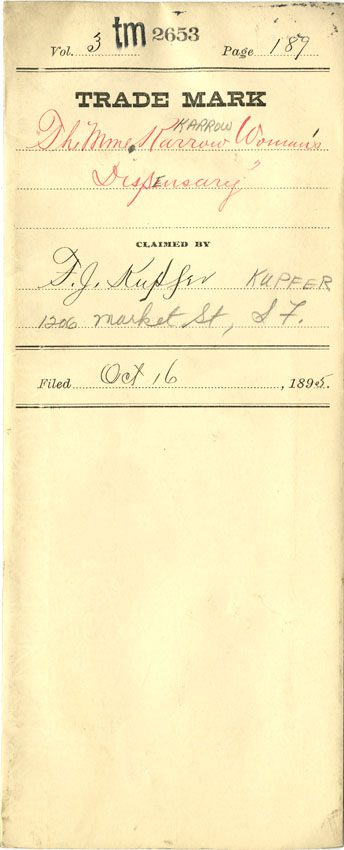 Vol. 3 tm 2653 Page 189
TRADE MARK
KARROW
"The Mme. Karrow Woman's
Dispensary"
CLAIMED BY
F. J. Kupfer KUPFER
1206 market St, S F.
Filed Oct 16, 1895.